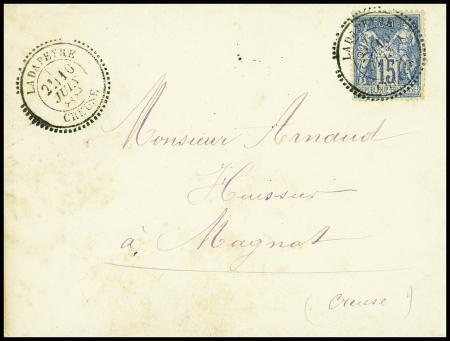 LADAPEYRE
2E 10
JUIN
CREUSE
LADAPEYRE
15
Monsieur Arnaud
Huissier
à Magnat
(Creuse)